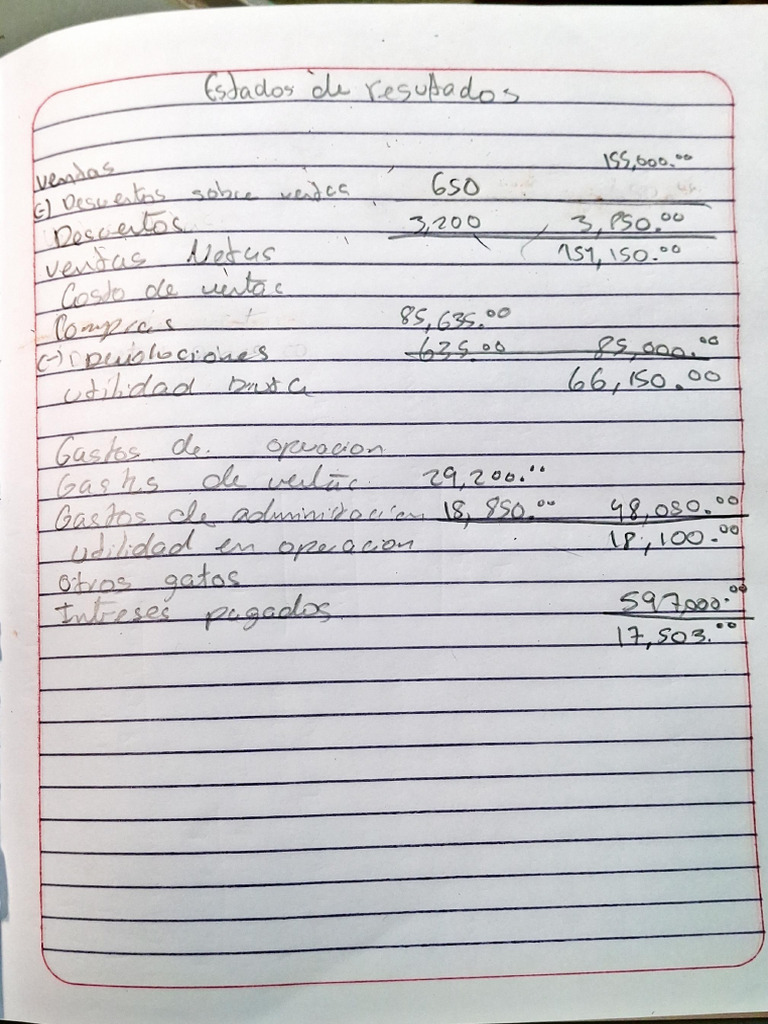 Estados de resultados
vendas 155,000.00
(-) Descuentos sobre ventas 650
Descuentos 3,200 3,850.00
ventas Netas 151,150.00
Costo de ventas
Compras 85,635.00
(-) Devoluciones 635.00 85,000.00
utilidad bruta 66,150.00
Gastos de. operacion
Gastos de ventas 29,200.00
Gastos de adminitracion 18,850.00 48,050.00
utilidad en operacion 18,100.00
Otros gatos
Intreses pagados 597,000.00
17,503.00